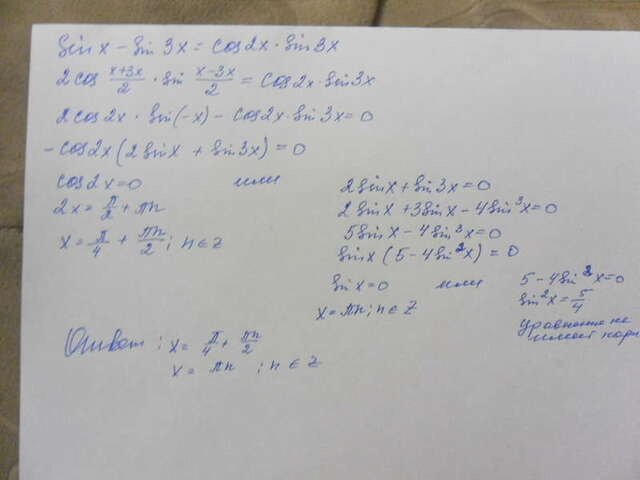 sin x - sin 3x = cos 2x · sin 3x
2 cos (x+3x)/2 · sin (x-3x)/2 = cos 2x · sin 3x
2 cos 2x · sin(-x) - cos 2x · sin 3x = 0
- cos 2x (2 sin x + sin 3x) = 0
cos 2x = 0 или
2x = π/2 + πn
x = π/4 + πn/2 ; n ∈ Z
2 sin x + sin 3x = 0
2 sin x + 3 sin x - 4 sin³x = 0
5 sin x - 4 sin³x = 0
sin x (5 - 4 sin²x) = 0
sin x = 0 или
x = πn; n ∈ Z
5 - 4 sin²x = 0
sin²x = 5/4
уравнение не
имеет корн
Ответ: x = π/4 + πn/2
x = πn ; n ∈ Z